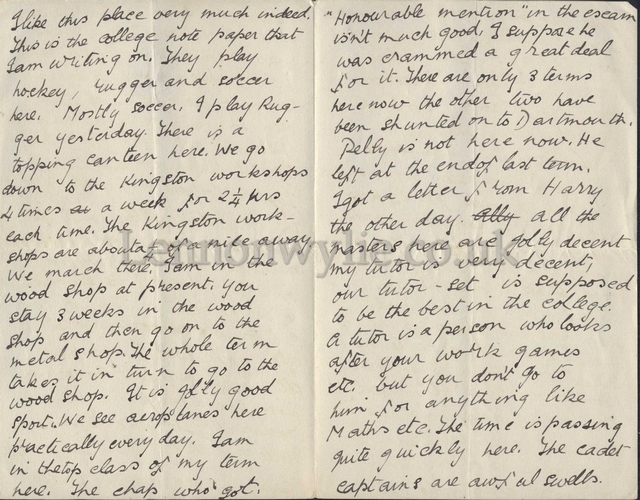 I like this place very much indeed.
This is the college note paper that
I am writing on. They play
hockey, rugger and soccer
here. Mostly soccer. I play Rug-
ger yesterday. There is a
topping canteen here. We go
down to the Kingston workshops
4 times a week for 2¼ hrs
each time. The Kingston work-
shops are about a of a mile away
We march there. I am in the
wood shop at present. You
stay 3 weeks in the wood
shop and then go on to the
metal shop. The whole term
takes it in turn to go to the
wood shop. It is golly good
sport. We see aeroplanes here
practically every day. I am
in the top class of my term
here. The chap who got.
"Honourable mention" in the exam
isn't much good. I suppose he
was crammed a great deal
for it. There are only 3 terms
here now the other two have
been shunted on to Dartmouth.
Pelly is not here now. He
left at the end of last term.
I got a letter from Harry
the other day. all the
masters here are golly decent
my tutor is very decent,
our tutor-set is supposed
to be the best in the college.
A tutor is a person who looks
after your work games
etc. but you don't go to
him for anything like
Maths etc. The time is passing
quite quickly here. The cadet
captains are awful swells.
Lennonwylie.co.uk